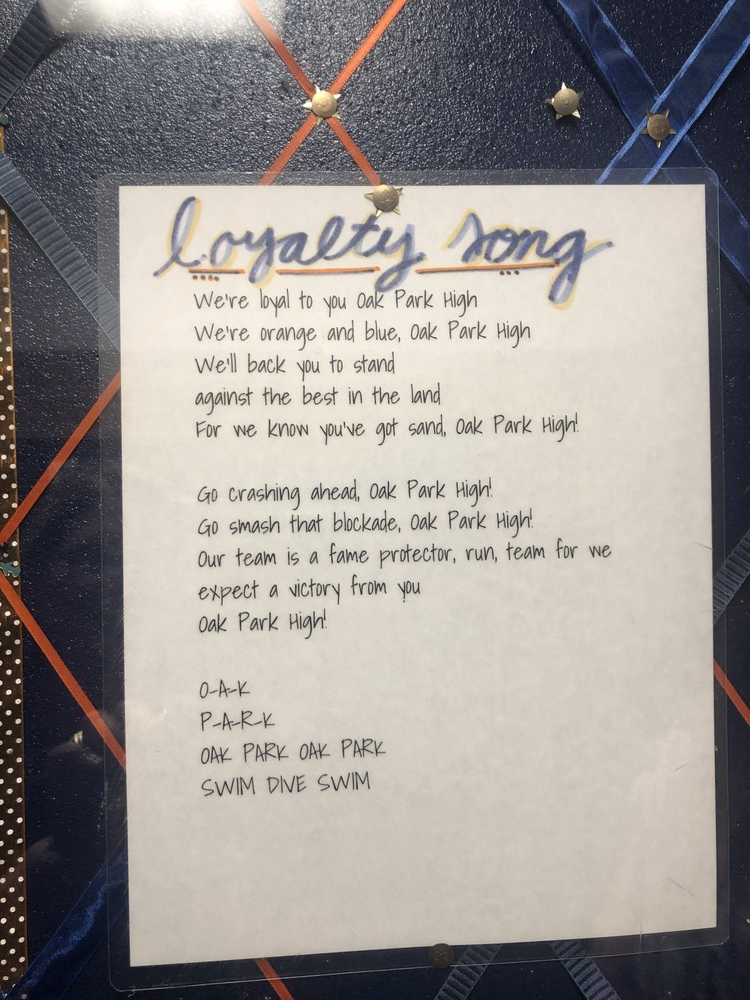 loyalty song
We're loyal to you Oak Park High
We're orange and blue, Oak Park High
We'll back you to stand
against the best in the land
For we know you've got sand, Oak Park High!
Go crashing ahead, Oak Park High!
Go smash that blockade, Oak Park High!
Our team is a fame protector, run, team for we
expect a victory from you
Oak Park High!
O-A-K
P-A-R-K
OAK PARK OAK PARK
SWIM DIVE SWIM